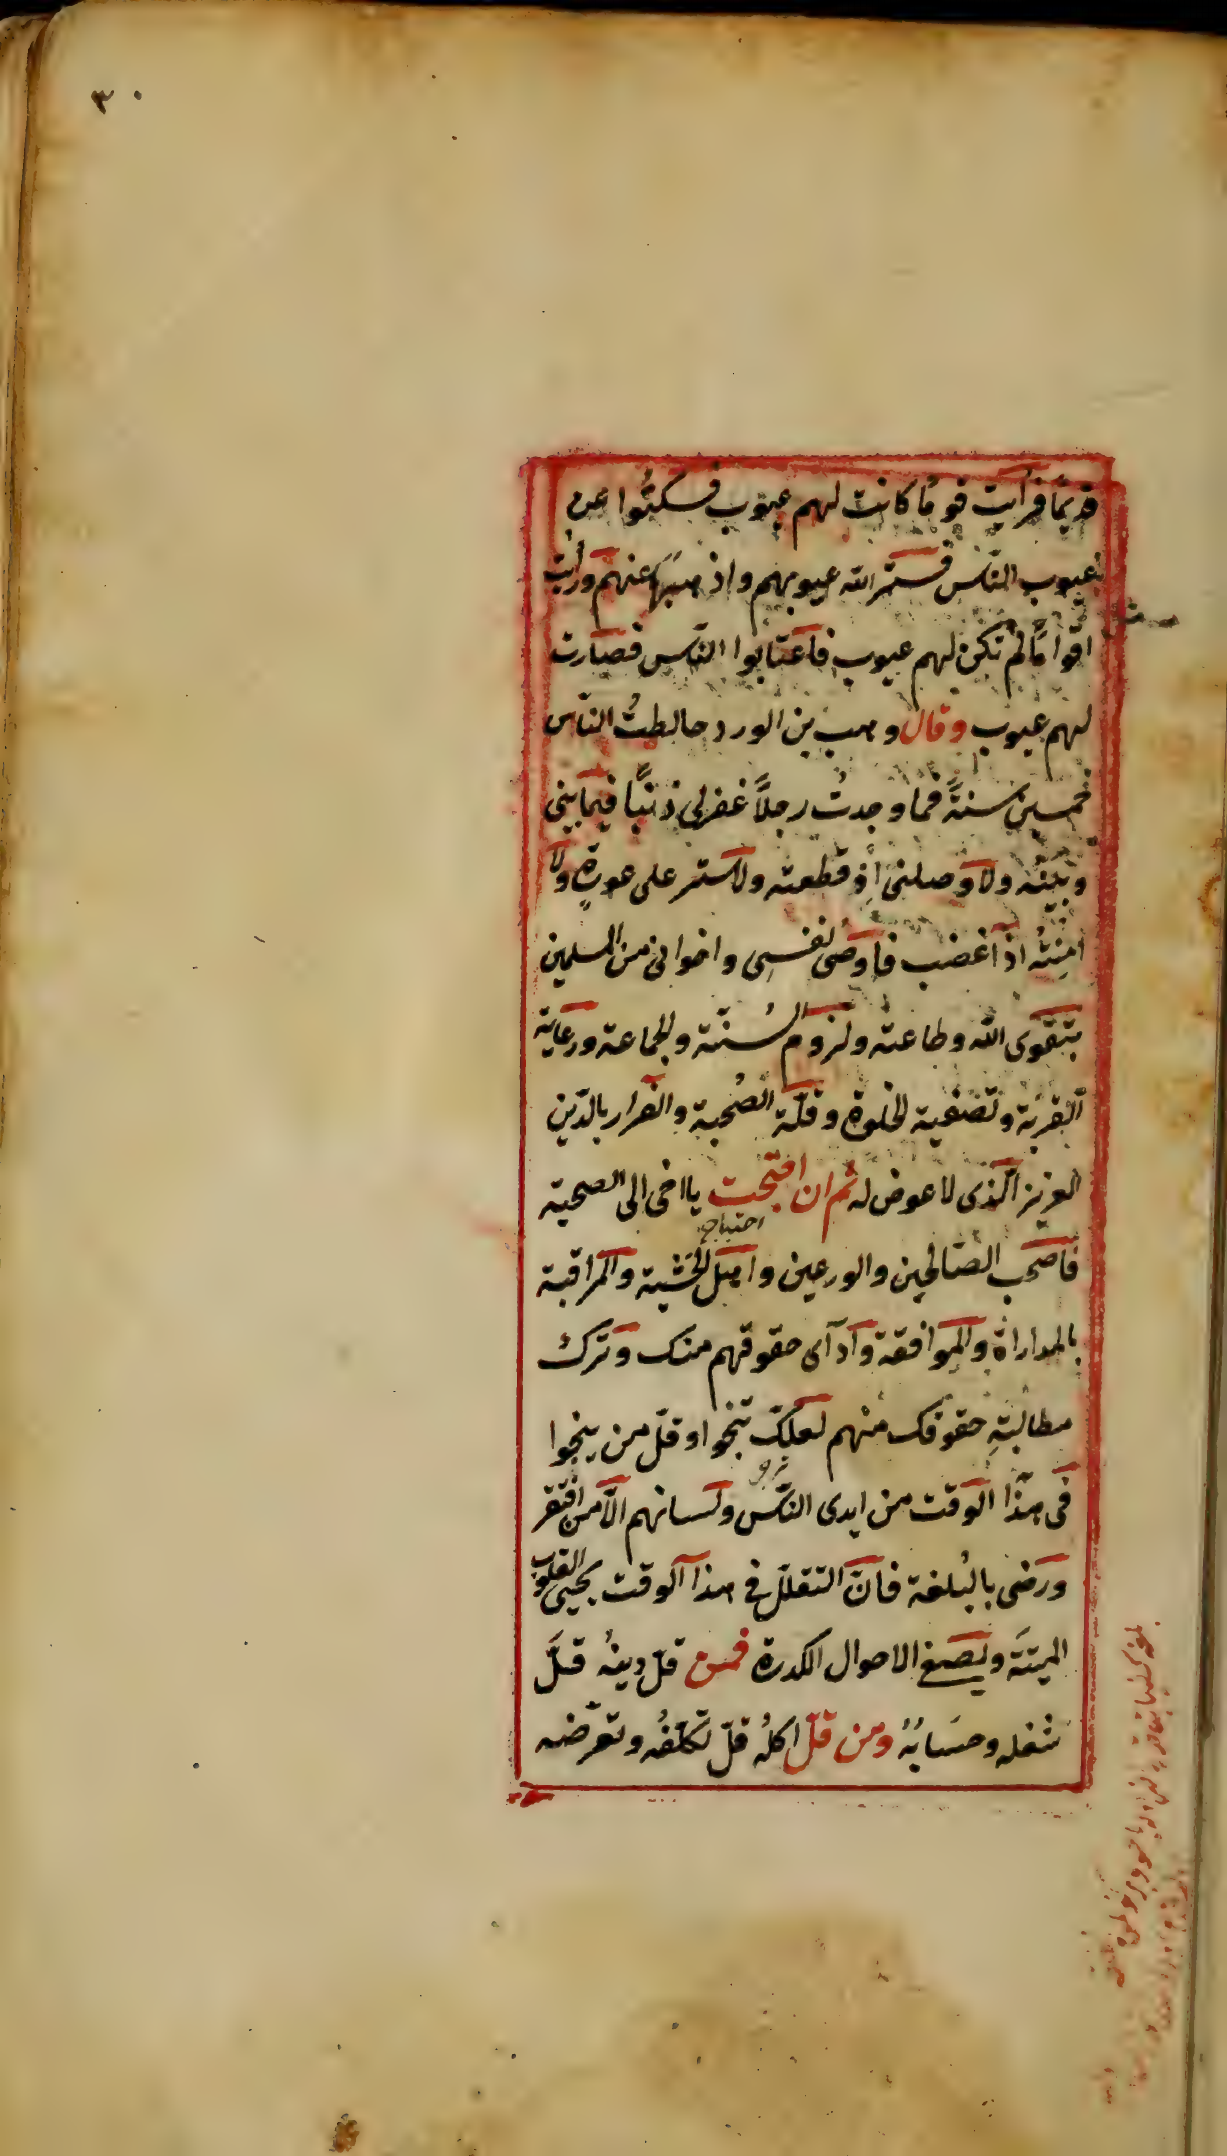 ٣٠
قديمًا فرأيت قومًا كانت لهم عيوب فسكتُوا عن
عيوب الناس فستر الله عيوبهم واذهبها عنهم ورأيت
اقوامًا لم تكن لهم عيوب فاعتابوا الناس فصارت
لهم عيوب وقال وهب بن الورد خالطتُ الناس
خمسين سنةً فما وجدتُ رجلاً غفر لي ذنبًا فيما بيني
وبينه ولا وصلنى اذ قطعته ولا ستر على عورةٍ ولا
امنتُه اذا غضب فاوصى لنفسى واخوانى من المسلمين
بتقوى الله وطاعته ولزوم السُنّة والجماعة ورعاية
القربة وتصفية الخلوة وقلّة الصُحبة والفرار بالدّين
العزيز الّذى لا عوض له ثم ان افتجت يا اخى الى الصحبة
احتياج
فاصحب الصّالحين والورعين واهل الخشية والمراقبة
بالمداراة والموافقة وادآى حقوقهم منك وترك
مطالبةِ حقوقك منهم لعلّك تنجوا وقلّ من ينجوا
فى هذا الوقت من ايدى النّاس ولسانهم الّا من افتقر
ورضى بالبُلغة فانّ التقلّل فى هذا الوقت يحيى القلوب
الميتَة ويصفى الاحوال الكدرة فمن قلّ دينهُ قلَّ
شغله وحسَابُهُ ومن قلّ اكلهُ قلّ تكلّفُه وتعرّضه